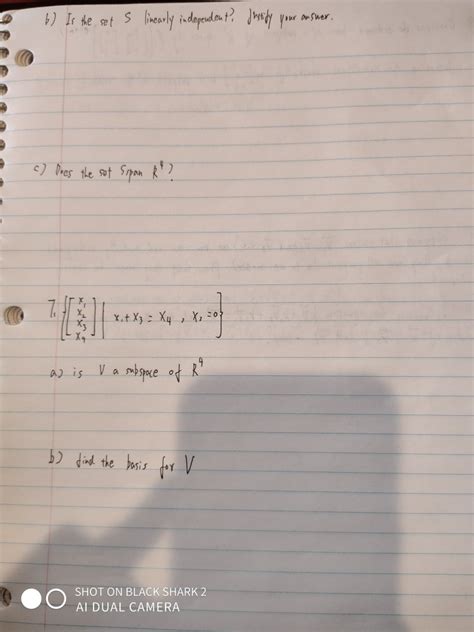 b) Is the set S linearly independent? Justify your answer.
c) Does the set S span R⁴?
7. {[x₁ x₂ x₃ x₄] | x₁ + x₃ = x₄ , x₁ = 0}
a) is V a subspace of R⁴
b) find the basis for V
SHOT ON BLACK SHARK 2
AI DUAL CAMERA